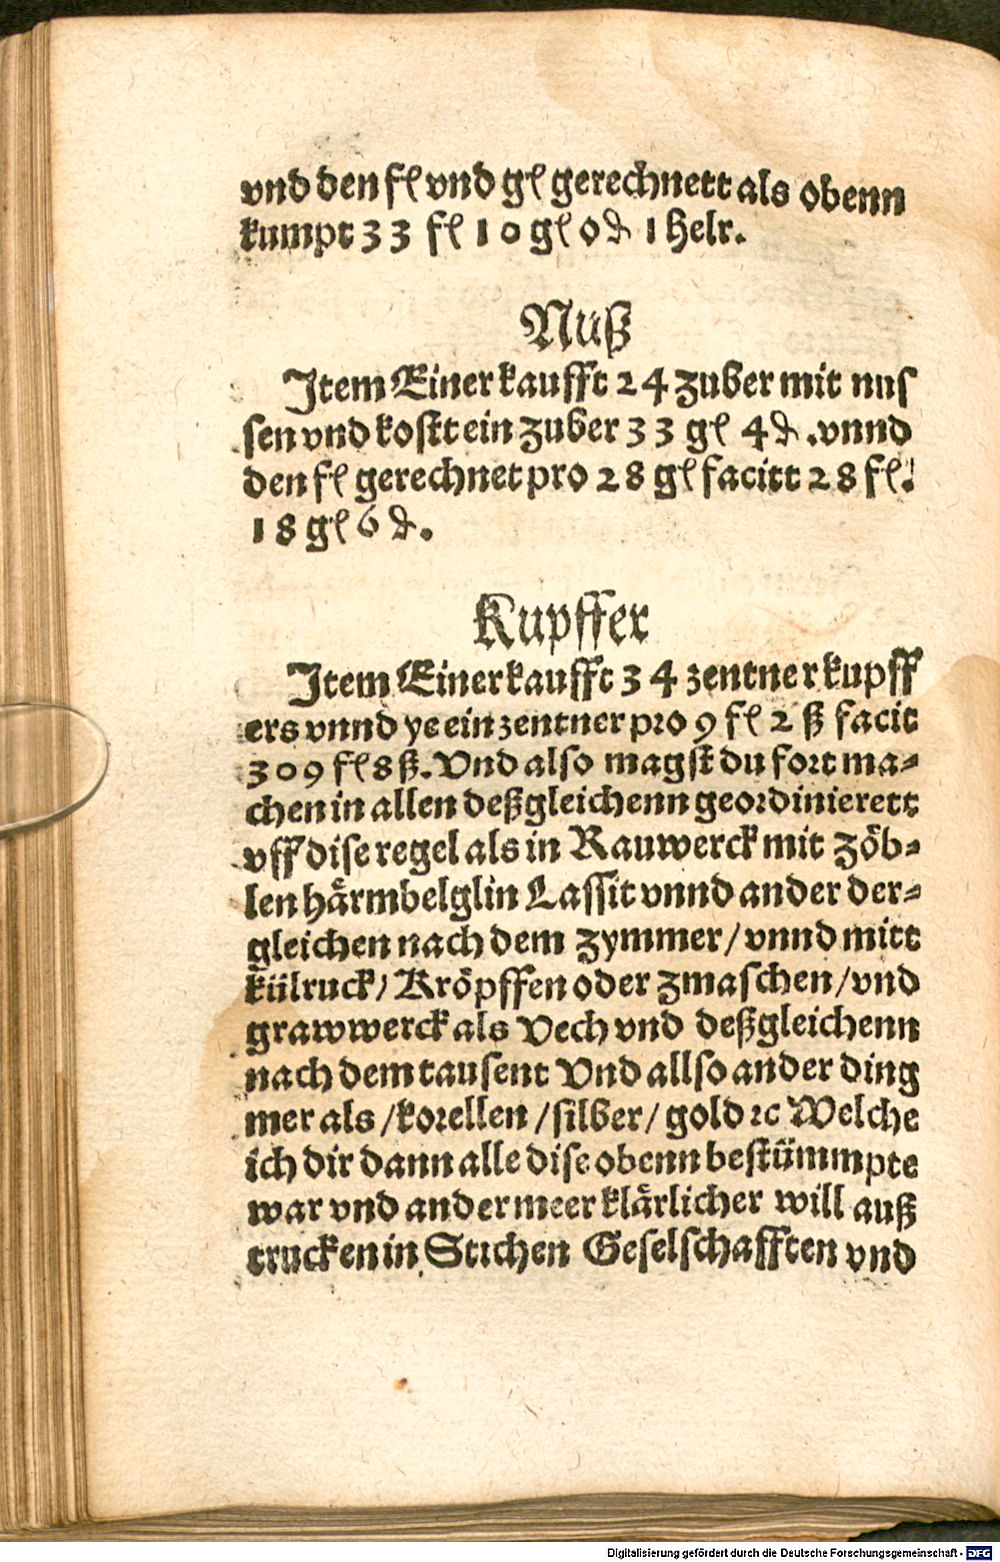 vnd den fl vnd gl gerechnett als obenn
kumpt 33 fl 10 gl 0 ₰ 1 helr.
Nuß
Item Einer kaufft 24 zuber mit nus
sen vnd kostt ein zuber 33 gl 4 ₰. vnnd
den fl gerechnet pro 28 gl facitt 28 fl.
18 gl 6 ₰.
Kupffer
Item Einer kaufft 34 zentner kupff
ers vnnd ye ein zentner pro 9 fl 2 ß facit
309 fl 8 ß. Vnd also magst du fort ma-
chen in allen deßgleichenn geordinierett
vff dise regel als in Rauwerck mit zöb-
len härmbelglin Lassit vnnd ander der-
gleichen nach dem zymmer/ vnnd mitt
külruck/ Kröpffen oder zmaschen/ vnd
grawwerck als Vech vnd deßgleichenn
nach dem tausent Vnd allso ander ding
mer als /korellen /silber/ gold ꝛc Welche
ich dir dann alle dise obenn bestümmpte
war vnd ander meer klärlicher will auß
trucken in Stichen Geselschafften vnd
Digitalisierung gefördert durch die Deutsche Forschungsgemeinschaft - DFG